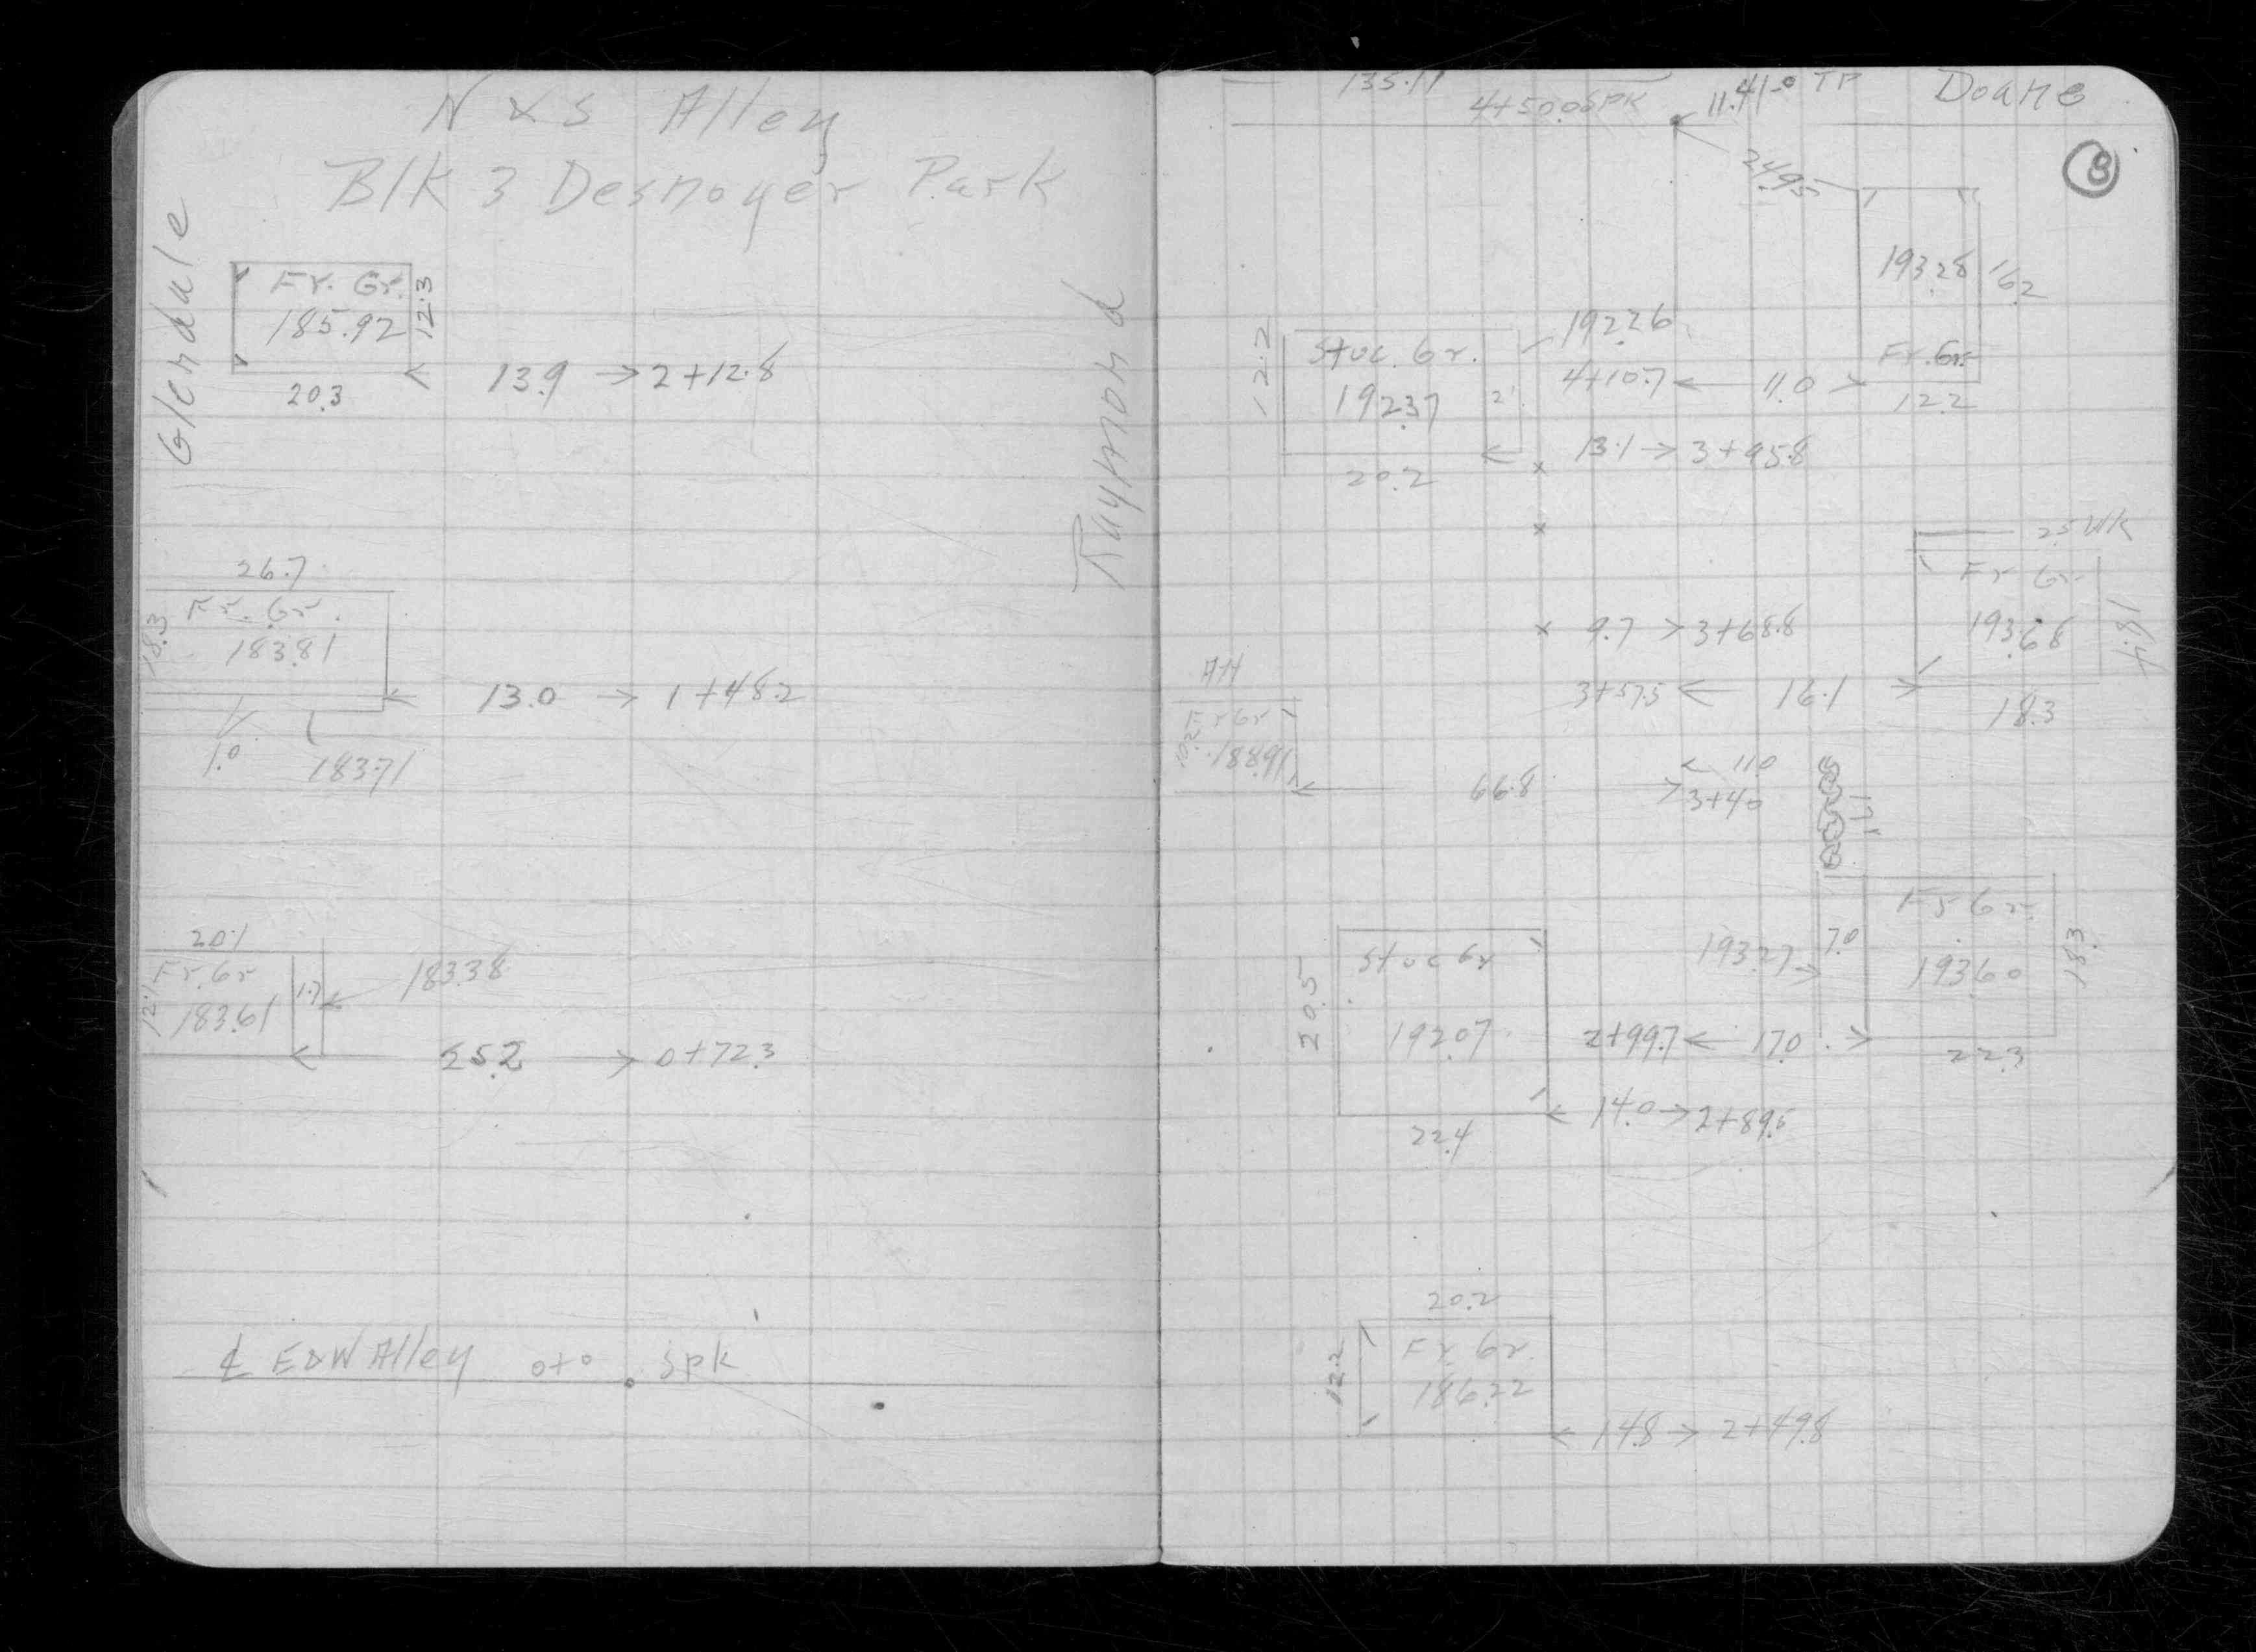 N & S Alley
Blk 3 Desnoyer Park
Glendale
Fr. Gr.
185.92
12.3
20.3
13.9 → 2+12.8
26.7
Fr. Gr.
18.3
183.81
13.0 → 1+48.2
1.0
183.71
20.1
Fr. Gr
12.1
183.61
1.7
183.38
25.2 → 0+72.3
℄ E&W Alley 0+0 Spk
Raymond
135.11
4+50.00 SPK
11.41-0 TP
Doane
8
24.95
193.28
16.2
Fr. Gr.
12.2
192.26
12.2
Stuc. Gr.
192.37
2'
4+10.7 ← 11.0 →
20.2
← 13.1 → 3+95.8
x
x
25 Wk
Fr Gr
193.68
18.4
x 9.7 → 3+68.8
3+57.5 ← 16.1 →
18.3
AH
Fr Gr
10.2
188.91
← 11.0
← 66.8 → 3+40
Fr Gr.
193.27 →
7.0
193.60
18.3
Stuc Gr
20.5
192.07
2+99.7 ← 17.0 →
22.3
← 14.0 → 2+89.5
22.4
20.2
Fr. Gr.
12.2
186.22
← 14.8 → 2+49.8